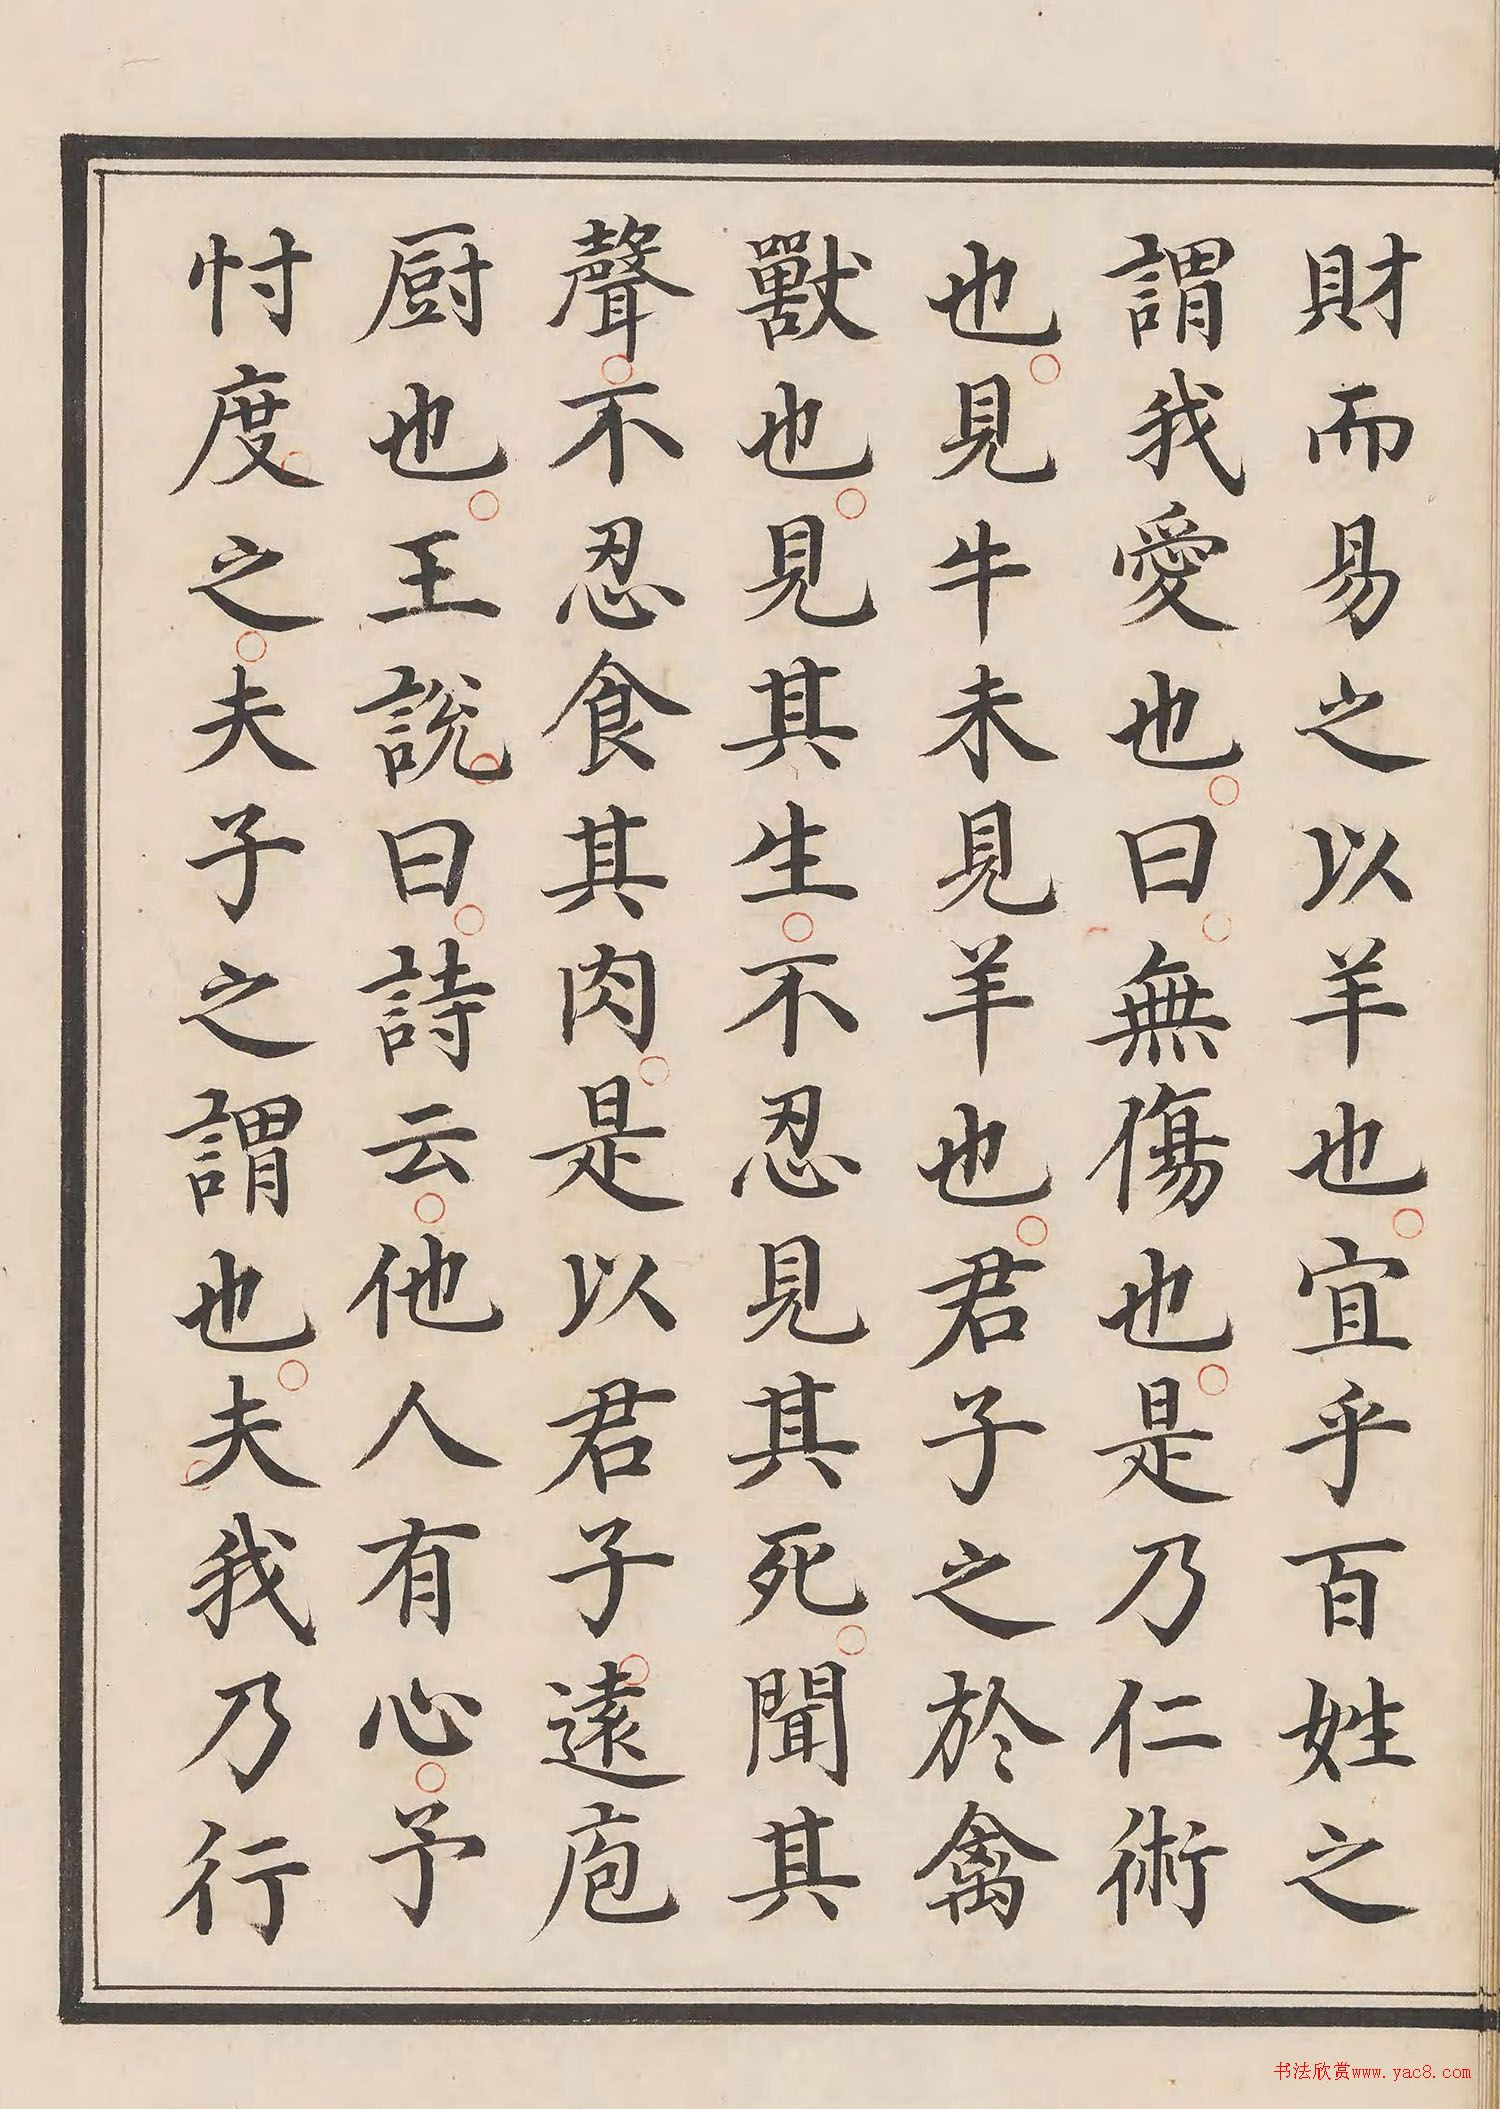 財而易之以羊也○宜乎百姓之
謂我愛也○曰○無傷也○是乃仁術
也○見牛未見羊也○君子之於禽
獸也○見其生○不忍見其死○聞其
聲○不忍食其肉○是以君子遠庖
厨也○王說曰○詩云○他人有心○予
忖度之○夫子之謂也○夫我乃行
书法欣赏www.yac8.com